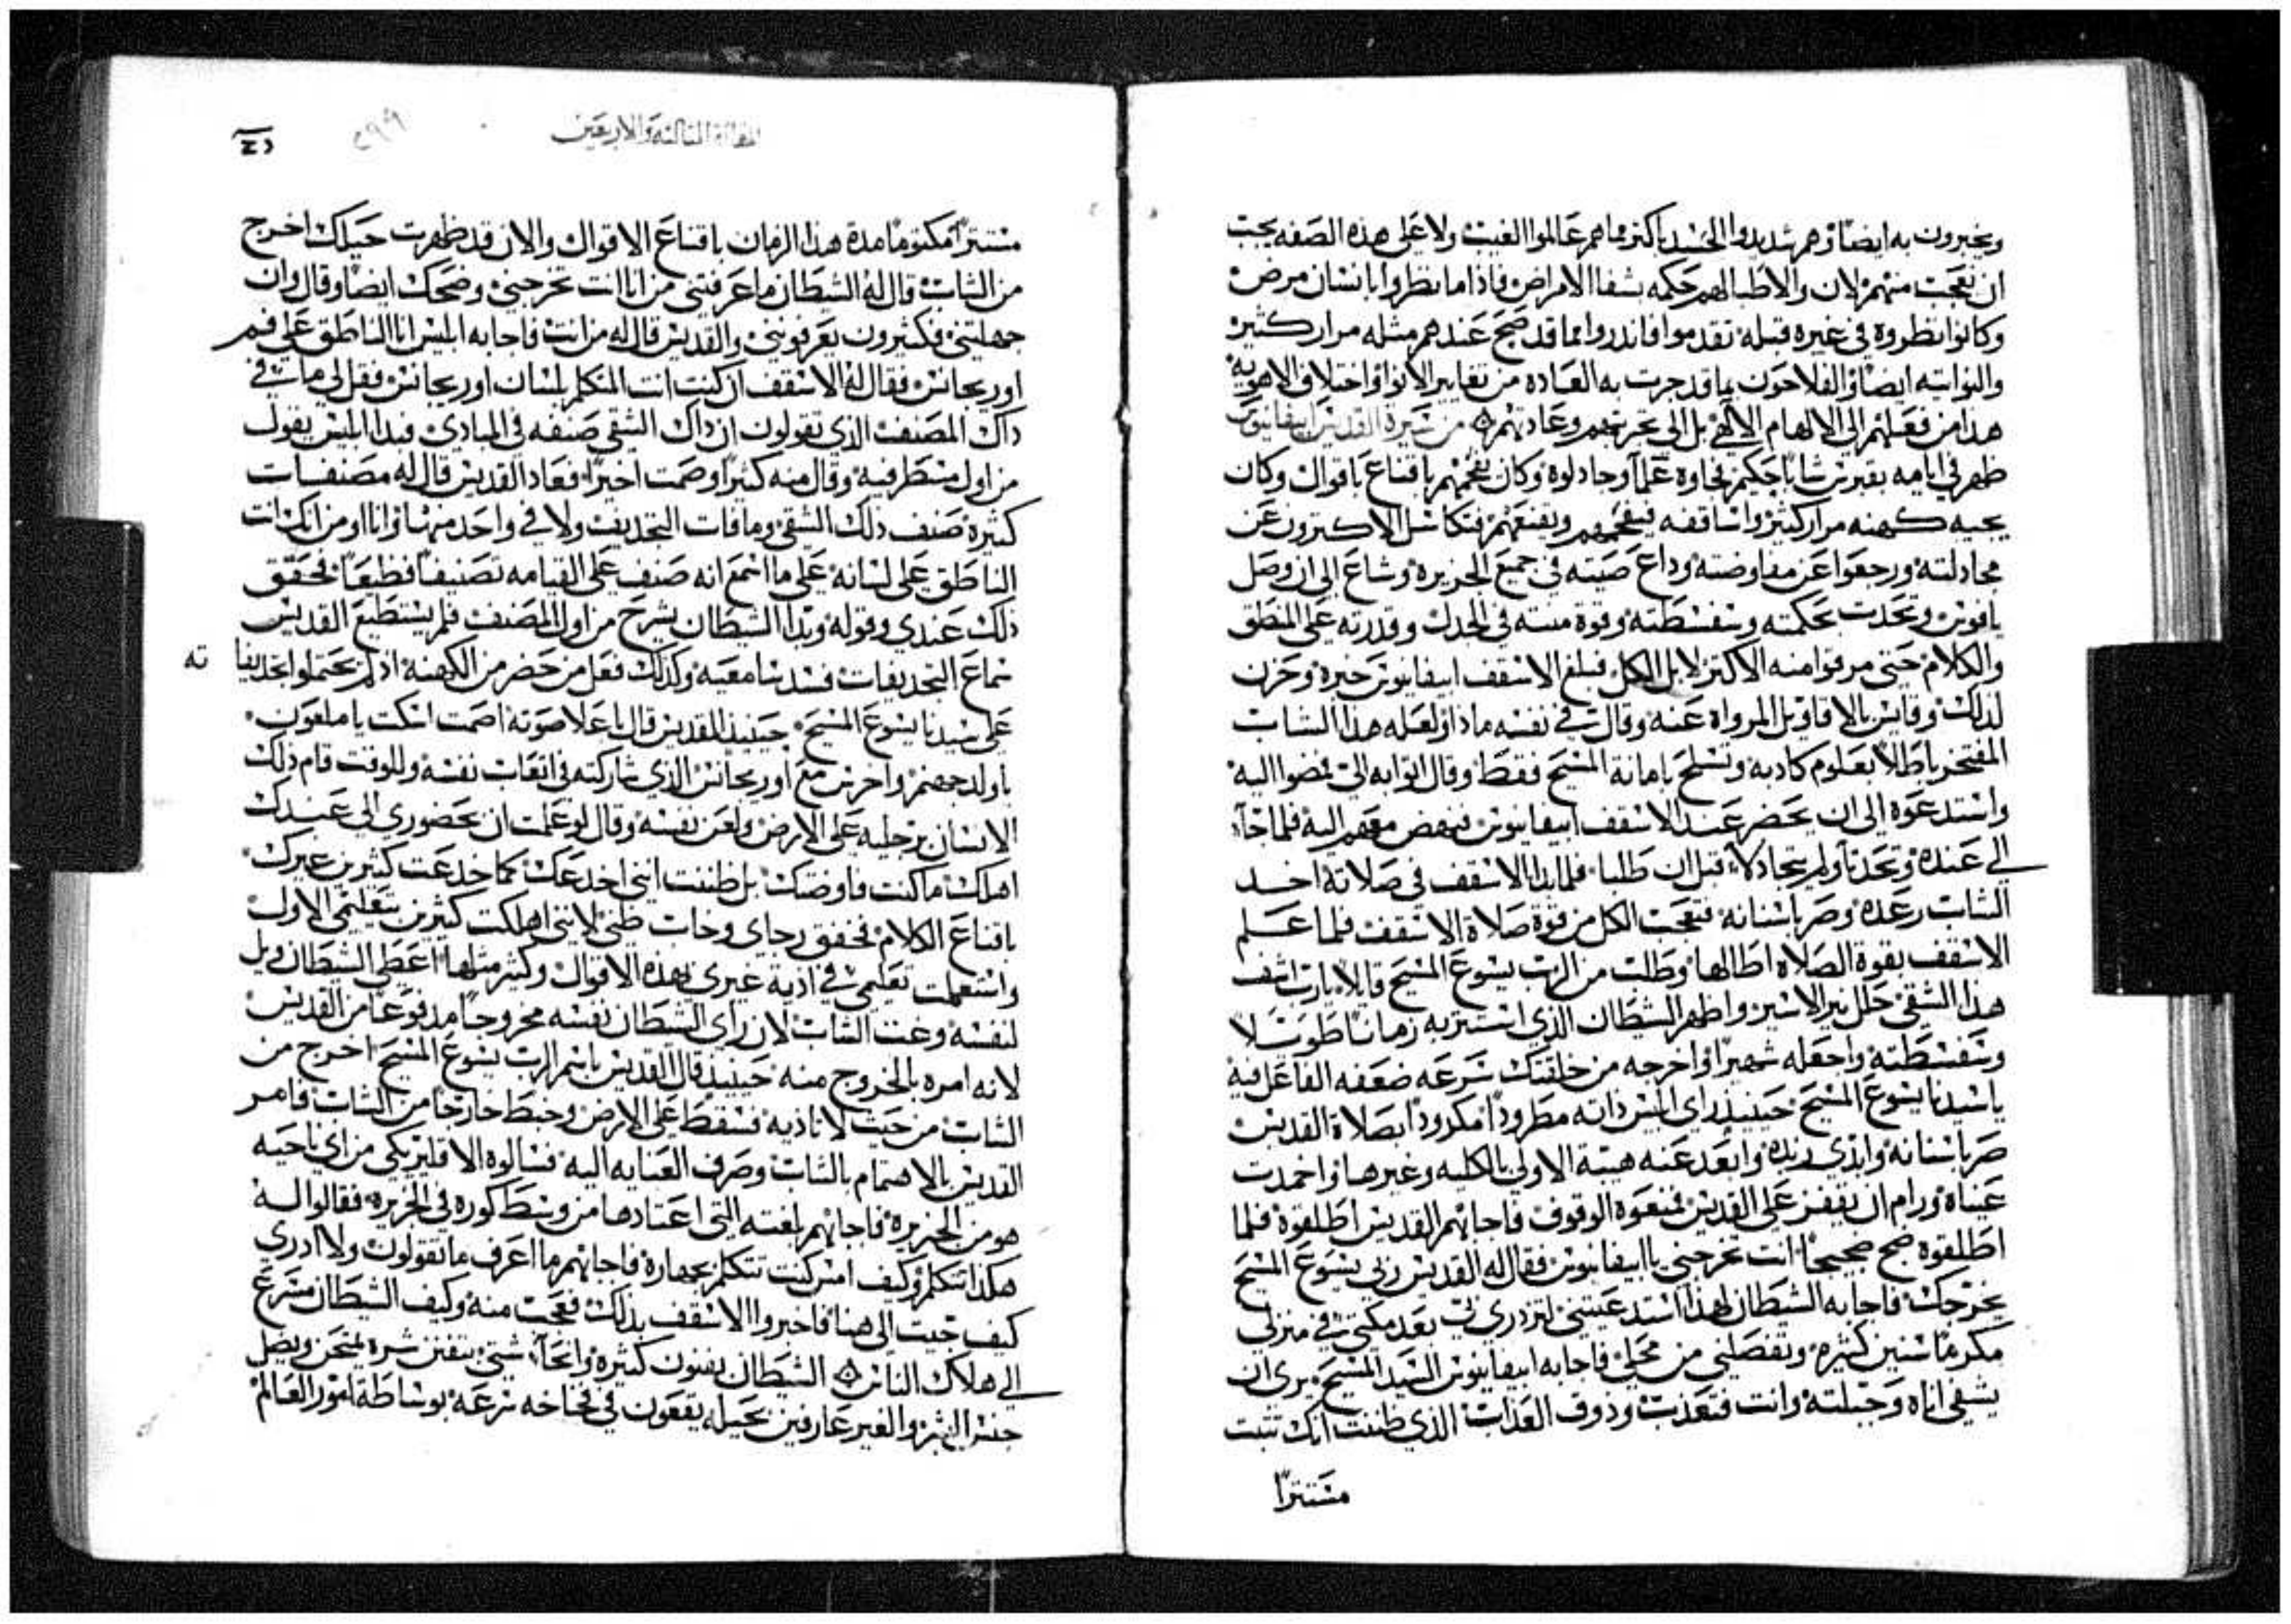 ويخبرون به ايضا وهم شديدوا الحسد باكثر وما هم عالموا الغيب ولا على هذه الصفه يجب
ان نعجب منهم لان والاطبا لهم حكمه بشفا الامراض فاذا ما نظروا بانسان مرض
وكانوا نظروه في غيره قبله تقدموا فاندروا بما قد صح عندهم مثله مرار كثير
والنواتيه ايضا والفلاحون بما قد جرت به العاده من تغايير الانوا واختلاف الاهويه
هدا من فعلهم الى الالهام الالهي بل الى تجربتهم وعادتهم من سيرة القديس ابيفانيوس
ظهر في ايامه بقبرس شابا حكيم نحاوه علما وجادلوه وكان يفحمهم باقناع باقوال وكان
يجيه كهنه مرار كثير واساقفه فيفحمهم ويقنعهم فتكاسل الاكثرون عن
مجادلته ورجعوا عن مفاوضته وداع صيته في جميع الجزيره وشاع الى ان وصل
يافوس وتحدت بحكمته وسفسطته وقوة منته في الجدل وقدرته على المنطق
والكلام حتى مرقوا منه الاكتر لا بل الكل فبلغ الاسقف ابيفانيوس خبره وحزن
لدلك وقايس بالاقاويل المرواه عنه وقال في نفسه ماذا ولعله هدا الشاب
المفتخر باطلا بعلوم كادبه وتسلح بامانة المسيح فقط وقال اتوا به الي فمضوا اليه
واستدعوه الى ان يحضر عند الاسقف ابيفانيوس فنهض معهم اليه فلما جا
الى عنده وتحدتا ولم يتجادلا قبل ان طلبا فلما بدا الاسقف في صلاته اخد
الشاب رعده وصر باسنانه فتعجب الكل من قوة صلاة الاسقف فلما علم
الاسقف بقوة الصلاه اطالها وطلب من الرب يسوع المسيح قايلا يارب اشف
هدا الشقي حل نير الاسير واظهر الشيطان الدي استتر به زمانا طويلا
وسفسطته واجعله شهيرا واخرجه من خلقتك سرعه ضعفه الفاعل فيه
يا سيدنا يسوع المسيح حينيد راى ابليس داته مطرودا مكرودا بصلاة القديس
صر باسنانه وابدى زبده وابعد عنه هيبة الاولى بالكليه وغيرها واخمدت
عيناه ورام ان يقفز على القديس فمنعوه الوقوف فاجابهم القديس اطلقوه فلما
اطلقوه صح صحيحا انت تخرجني يا ابيفانيوس فقال له القديس ربي يسوع المسيح
يخرجك فاجابه الشيطان لهدا استدعيتني لتزدري بي بعد مكتي في منزلي
مكرما سنين كثيره وتفصلني من محلي فاجابه ابيفانيوس السيد المسيح يرى ان
يشفي اناه وجبلته وانت فتعذب ودوق العذاب الذي ظننت انك تثبت
مستترا
المقالة التالته والاربعين
مستترا مكتوما مدة هدا الزمان باقناع الاقوال والان قد ظهرت حيلك اخرج
من الشاب قال له الشيطان ما عرفتني من انا انت تخرجني وضحك ايضا وقال وان
جهلتني فكثيرون يعرفونني والقديس قال له من انت فاجابه ابليس انا الناطق على فم
اوريجانس فقال له الاسقف ان كنت انت المتكلم بلسان اوريجانس فقل لي مات في
داك المصنف الذي تقولون ان داك الشقي صنفه في المبادي فبدا ابليس يقول
من اول مسطر فيه وقال منه كثيرا وصمت اخيرا فعاد القديس قال له مصنفات
كثيره صنف دلك الشقي وما فات التجديف ولا في واحد منها وانا اومن انك انت
الناطق على لسانه على ما اسمع انه صنف على القيامه تصنيفا فظيعا فحقق
دلك عندي وقوله وبدا الشيطان يشرح من اول المصنف فلم يستطيع القديس
سماع التجديفات فسد سامعيه وكدلك فعل من حضر من الكهنه اد لم يحتملوا تجديفا ته
على سيدنا يسوع المسيح حينيد القديس قال باعلا صوته اصمت اسكت يا ملعون
يا ولد جهنم واخرس مع اوريجانس الذي شاركته في اتعاب نفسه وللوقت قام دلك
الانسان برجليه على الارض ولعن نفسه وقال لو علمت ان بحضوري الى عندك
اهلك ما كنت فاوضتك بل ظننت انني اخدعك كما خدعت كثيرين غيرك
باقناع الكلام فخفق رجاي وخاب ظني لانني اهلكت كثيرين بتعليمي الاول
واستعملت تعليمي في ادية غيري بهده الاقوال وكثير متلها اعطى الشيطان ويل
لنفسه وعت الشاب لان راى الشيطان نفسه مخروجا مدفوعا من القديس
لانه امره بالخروج منه حينيد قال القديس باسم الرب يسوع المسيح اخرج من
الشاب من حيت لا تاديه فسقط على الارض وخبط خارجا من الشاب فامر
القديس بالاهتمام بالشاب وصرف العنايه اليه فسالوه الاقليريكي من اي ناحيه
هو من الجزيره فاجابهم بلغته التي اعتادها من وسط كوره في الجزيره فقالوا له
هكدا تتكلم وكيف امس كنت تتكلم بجهاره فاجابهم ما اعرف ما تقولون ولا ادري
كيف جيت الى هنا فاخبروا الاسقف بدلك فعجب منه وكيف الشيطان مسرع
الى هلاك الناس الشيطان بفنون كثيره وانحا شتى يتفنن شره ليمتحن ويضل
جنس البشر والغير عارفين بحيله يقعون في فخاخه سرعه بوساطة امور العالم